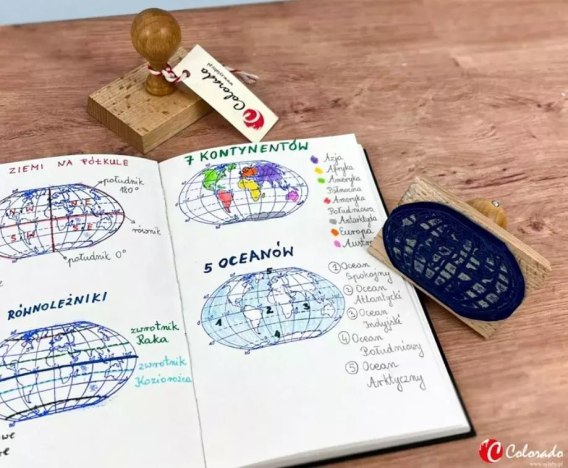 Colorado
ZIEMI NA PÓŁKULE
południk
180°
równik
południk 0°
RÓWNOLEŻNIKI
zwrotnik
Raka
zwrotnik
Koziorożca
7 KONTYNENTÓW
Azja
Afryka
Ameryka
Północna
Ameryka
Południowa
Antarktyda
Europa
5 OCEANÓW
1 2 3 4 5
① Ocean
Spokojny
② Ocean
Atlantycki
③ Ocean
Indyjski
④ Ocean
Południowy
⑤ Ocean
Arktyczny
Colorado